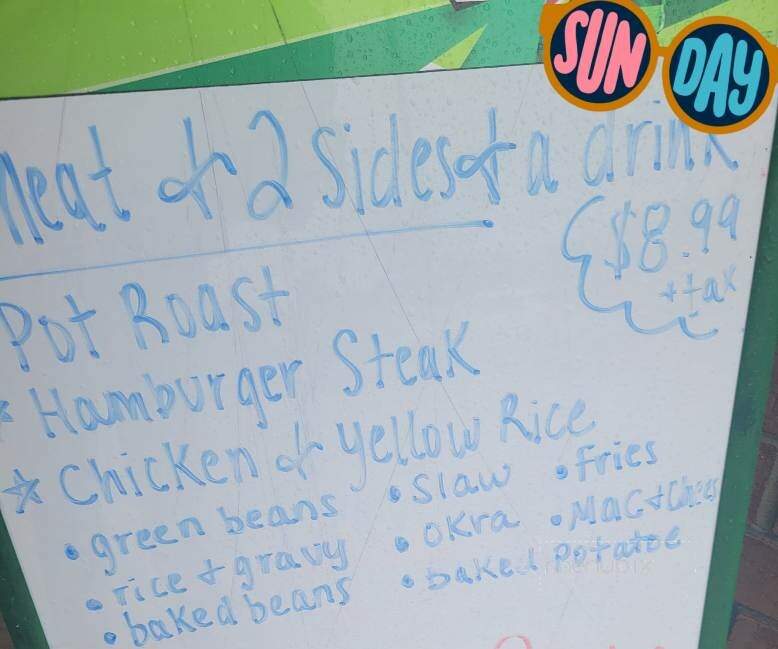 SUN DAY
Meat & 2 Sides & a drink
$8.99
+ tax
Pot Roast
Hamburger Steak
Chicken & Yellow Rice
• green beans • Slaw • fries
• rice + gravy • okra • Mac + Chees
• baked beans • baked potatoe